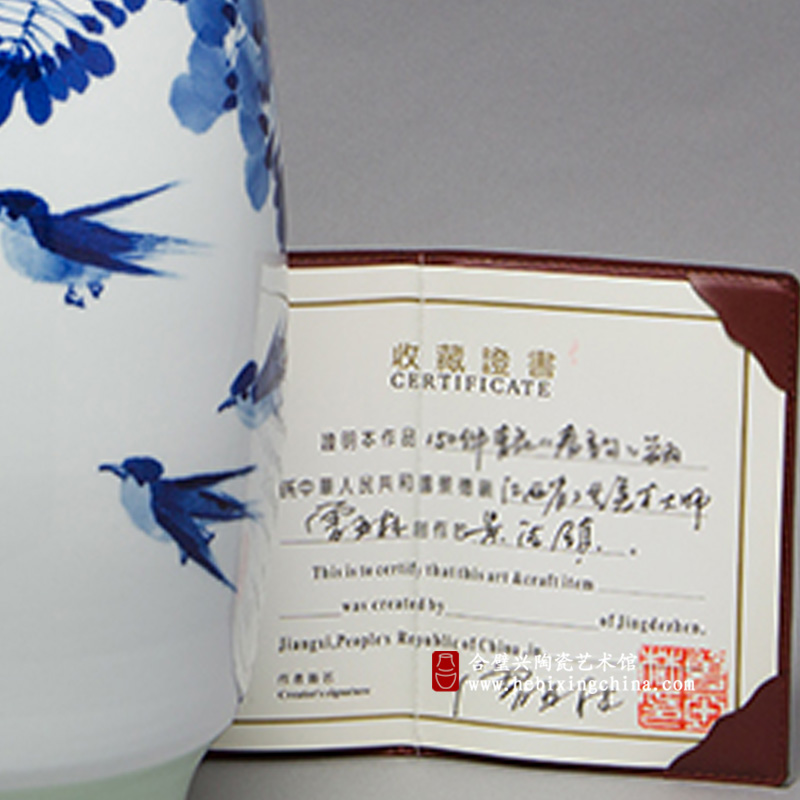 收藏證書
CERTIFICATE
證明本作品 150件
中華人民共和國景德鎮 江西省工艺美术大师
創作於 景德镇.
This is to certify that this art & craft item
was created by of Jingdezhen,
Jiangxi, People's Republic of China, in
作者簽名
Creator's signature
合璧兴陶瓷艺术馆
www.hebixingchina.com